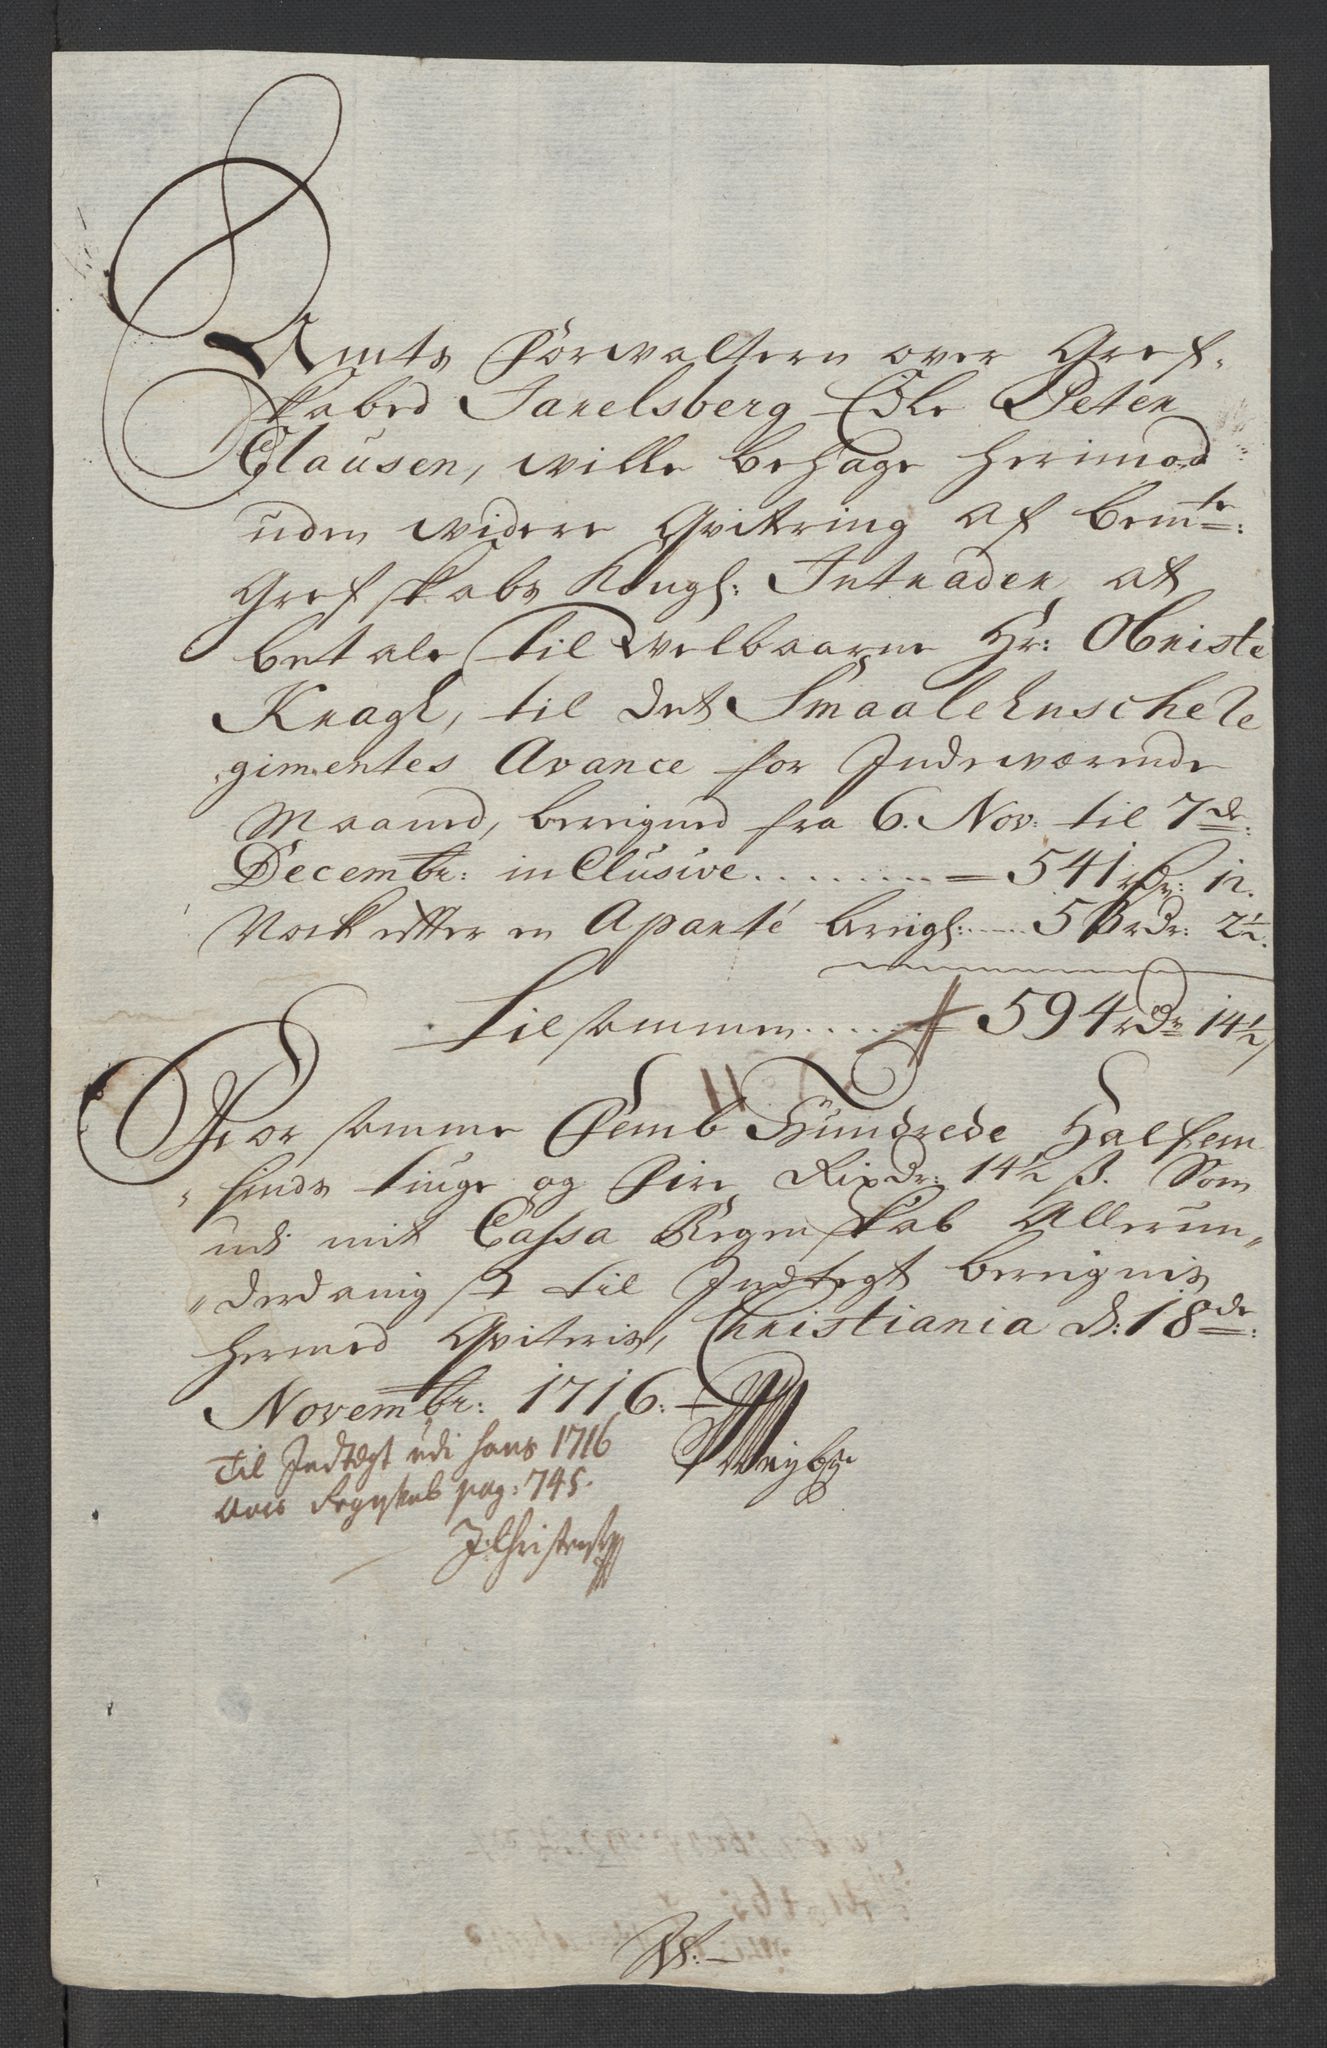 Amts Forvaltern over Gref-
skabed Jarelsberg Edle Peter
Clausen, wille behage herimod
uden widere Qvittring af bemte:
Grefskabs Kongl: Intrader at
betale til Welbaarne Hr: Obriste
Kragh, til det Smaalehnsche Re
gimentes Avance for Indeværende
Maaned, bereigned fra 6. Nov: til 7de:
Decembr: in Clusive ........ = 541 rdr: 12.
Nock efter en Aparté beregl: ..... 53 rdr: 2½.
Tilsammen ...... 594 rdr 14½
Hvor somme Femb Hundrede Halfem
"sinds tiuge og Fire Rixdr: 14½ ß. Som
udi mit Cassa Regenskab Allerun"
"derdanigst til Indtegt bereignis
hermed Qviteris, Christiania d: 18de:
Novembr: 1716.
Til Indtegt udi hans 1716
Aars Regnskab pag: 745.
J: Christensen